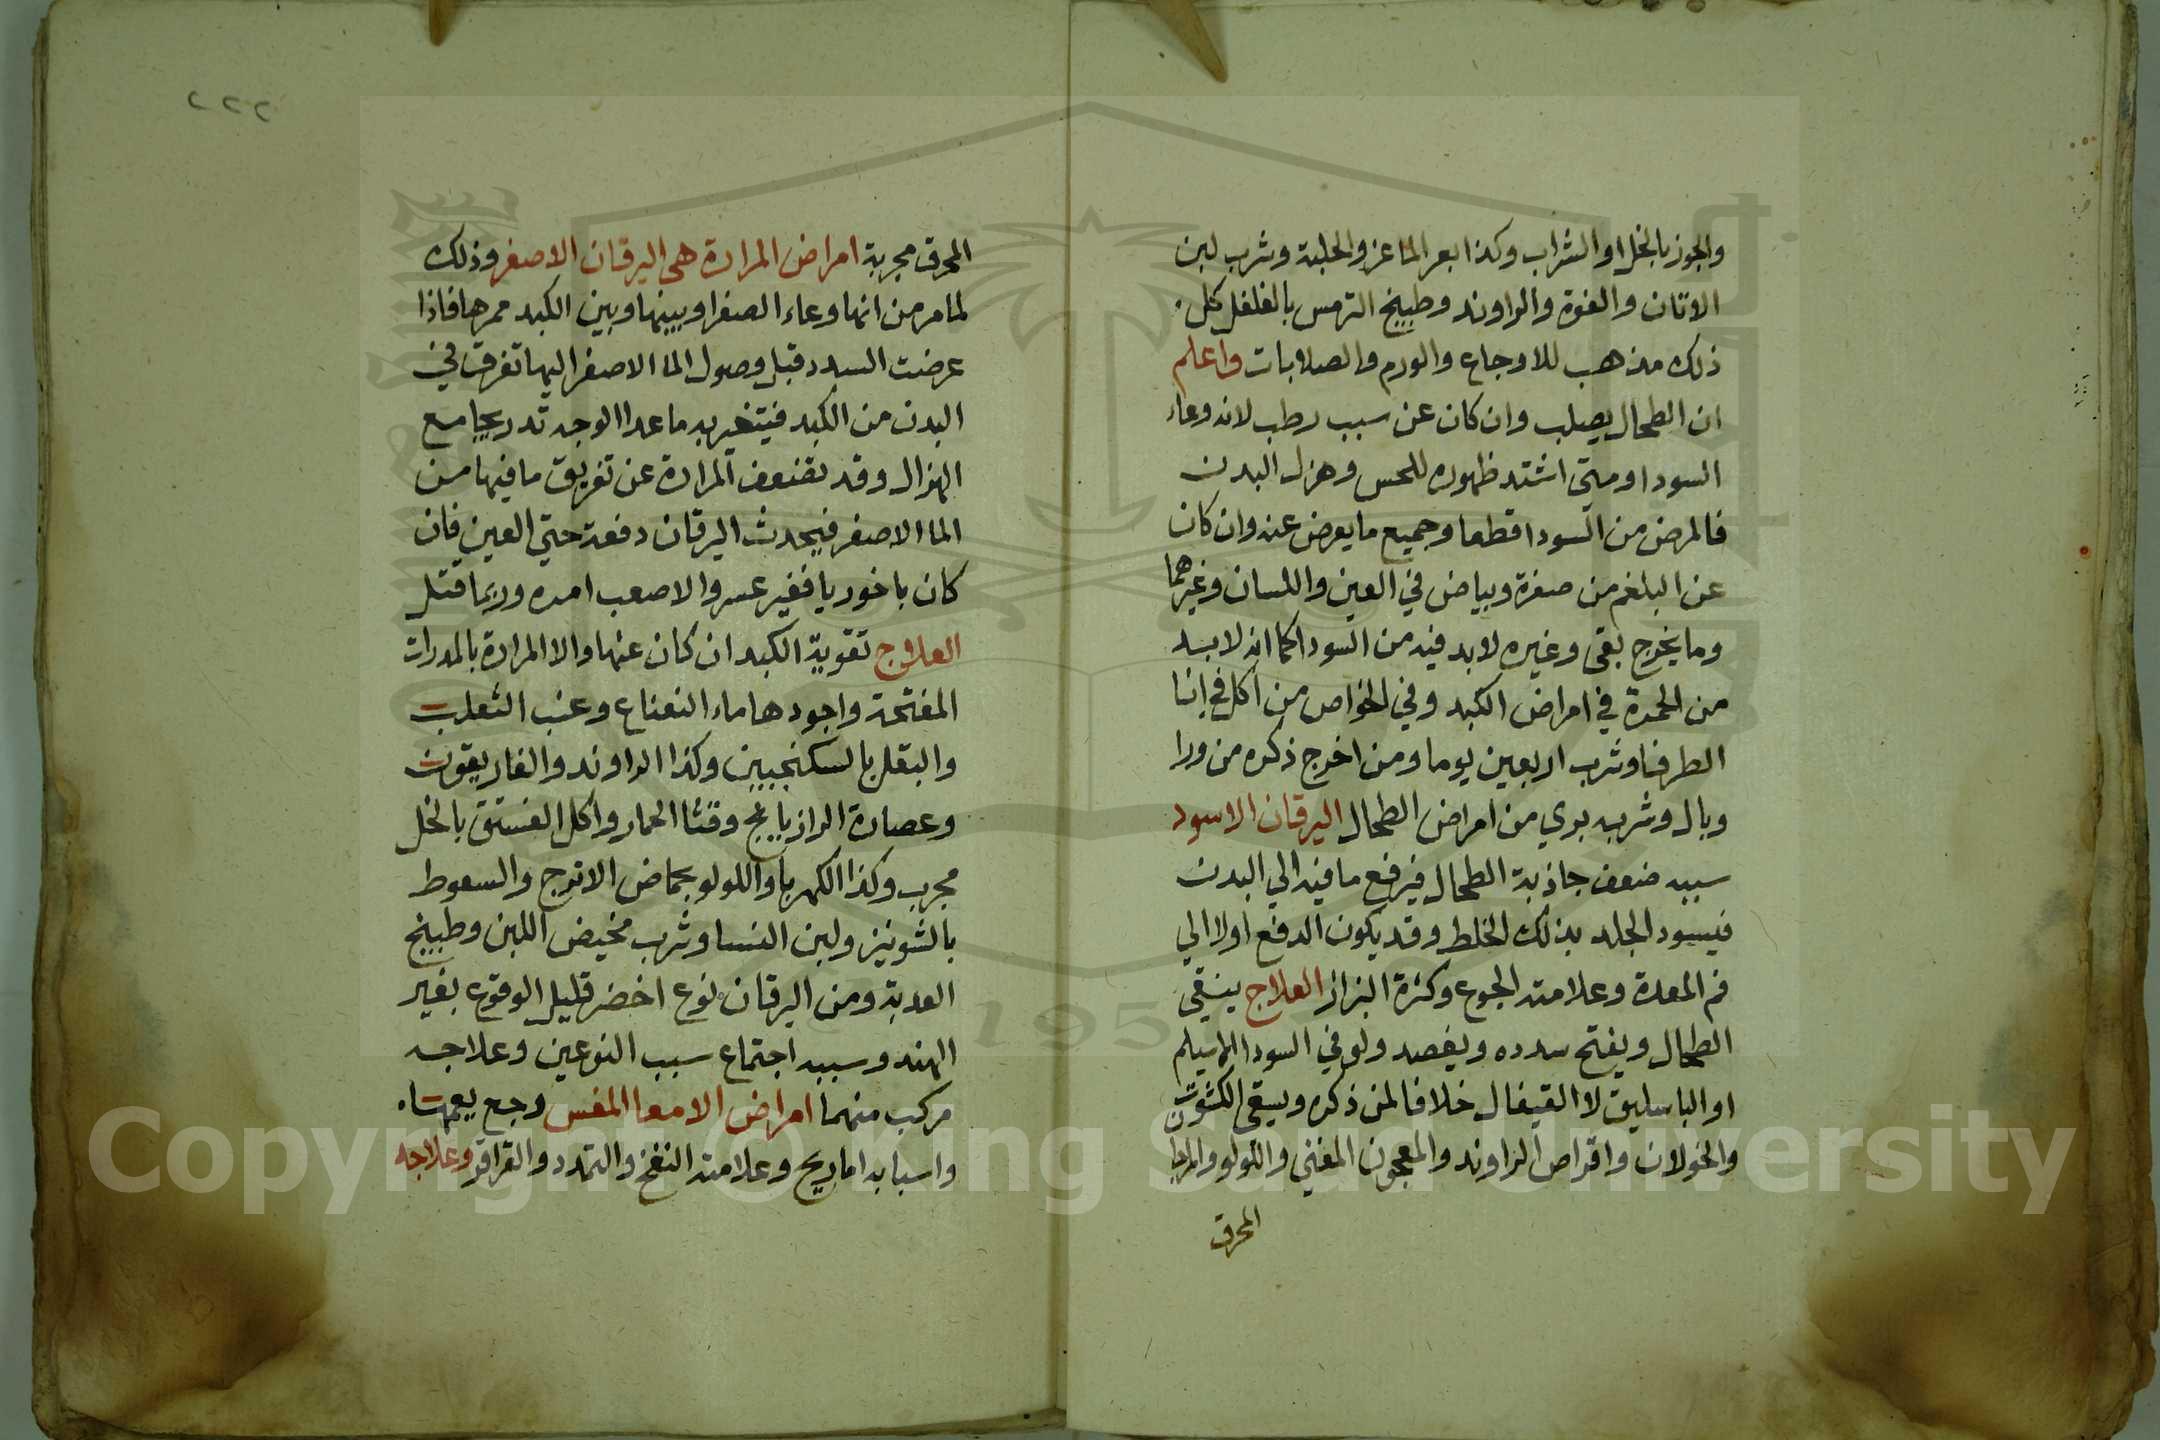 والجوز بالخل او الشراب وكذا بعر الماعز والحلبة وشرب لبن
الاتان والفوة والراوند وطبيخ الترمس بالفلفل كل
ذلك مذهب للاوجاع والورم والصلابات واعلم
ان الطحال يصلب وان كان عن سبب رطب لانه وعاء
السودا ومتي اشتد ظهوره للحس وهزل البدن
فالمرض من السودا قطعا وجميع ما يعرض عنه وان كان
عن البلغم من صفرة وبياض في العين واللسان وغيرهما
وما يخرج بقي وغيره لابد فيه من السودا كما انه لابد
من الحمرة في امراض الكبد وفي الخواص من اكل في انا
الطرفا وشرب اربعين يوما ومن اخرج ذكره من ورا
وبال وشربه بري من امراض الطحال اليرقان الاسود
سببه ضعف جاذبة الطحال فيرفع ما فيه الي البدن
فيسود الجلد بذلك الخلط وقد يكون الدفع اولا الي
فم المعدة وعلامته الجوع وكثرة البزاز العلاج ينقي
الطحال ويفتح سدده ويفصد ولو في السودا الاسيلم
او الباسليق لا القيفال خلافا لمن ذكره ويسقي الكشوت
والخولان واقراص الراوند والمعجون المغني واللولو والمرجا
المحرق
٢٢٢
المحرق مجربة امراض المرارة هي اليرقان الاصفر وذلك
لما مر من انها وعاء الصفرا وبينها وبين الكبد ممرها فاذا
عرضت السدد قبل وصول الما الاصفر اليها تفرق في
البدن من الكبد فيتغير به ما عدا الوجه تدريجا مع
الهزال وقد تضعف المرارة عن تفريق ما فيها من
الما الاصفر فيحدث اليرقان دفعة حتي العين فان
كان باخوريا فغير عسر والا صعب امره وربما قتل
العلاج تقوية الكبد ان كان عنها والا المرارة بالمدرات
المفتحة واجودها ماء النعناع وعنب الثعلب
والبقل بالسكنجبين وكذا الراوند والغاريقون
وعصارة الرازيانج وقثا الحمار واكل الفستق بالخل
مجرب وكذا الكهربا واللولو بحماض الاترج والسعوط
بالشونيز ولبن النسا وشرب مخيض اللبن وطبيخ
العدبة ومن اليرقان نوع اخضر قليل الوقوع بغير
الهند وسببه اجتماع سبب النوعين وعلاجه
مركب منهما امراض الامعا المغس وجع يعمها
واسبابه اما ريح وعلامته النفخ والتمدد والقراقر وعلاجه
Copyright © King Saud University
195